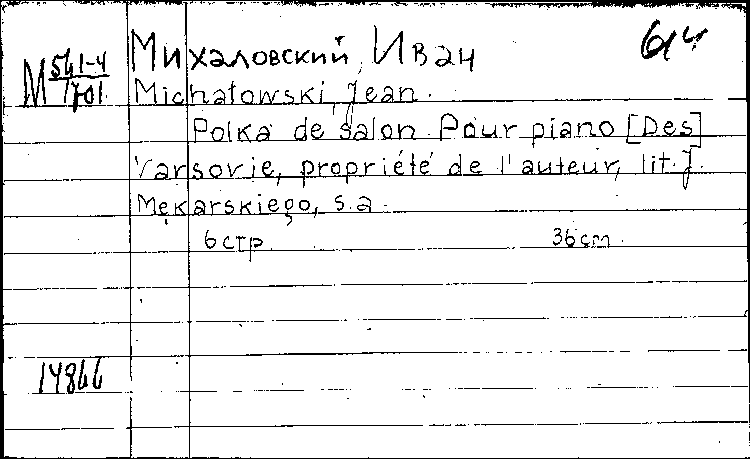 Михаловский, Иван 6н
М 561-4/1701
Michałowski, Jean.
Polka de salon. Pour piano [Des]
Varsovie, propriété de l'auteur, lit. J.
Mękarskiego, s.a.
6 стр. 36 cm.
14866